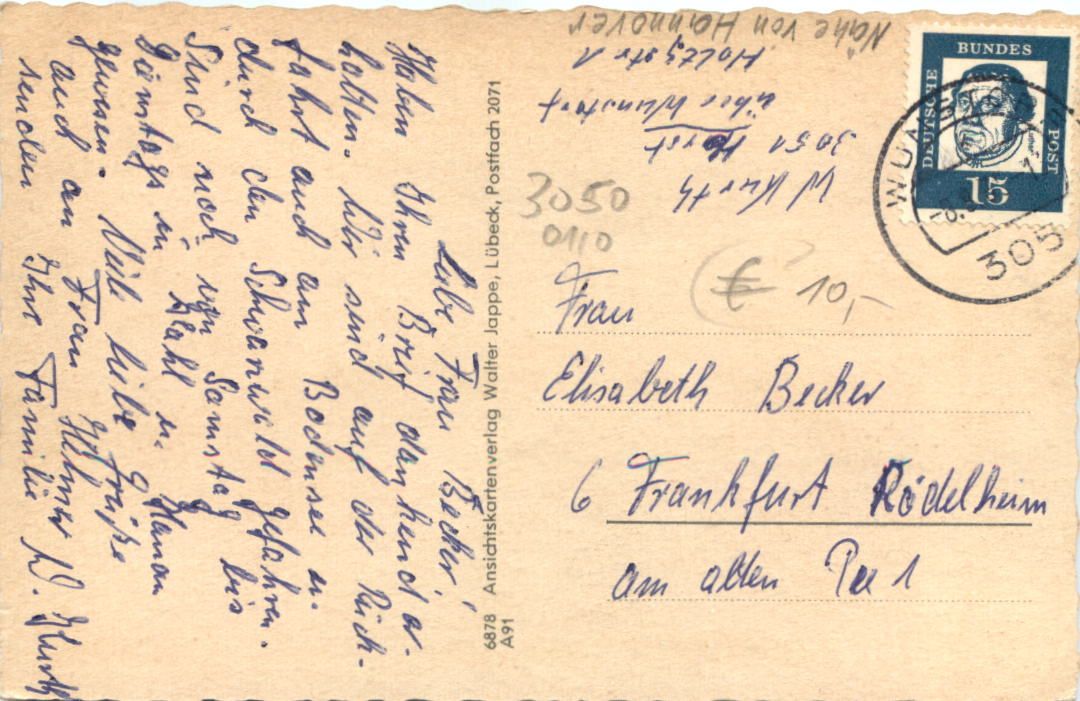 Liebe Frau Becker!
Haben Ihren Brief dankend er-
halten. Wir sind auf der Rück-
fahrt auch am Bodensee u.
durch den Schwarzwald gefahren.
Sind noch von Samstag bis
Dienstags in u. Hanau
gewesen. Viele liebe Grüße
auch an Frau
senden Ihre Familie W. Kurth
6878 Ansichtskartenverlag Walter Jappe, Lübeck, Postfach 2071
A91
Nähe von Hannover
W Kurth
3051 Horst
über Wunstorf
Holtzstr 1
3050
0110
€ 10,-
DEUTSCHE BUNDESPOST
15
305
Frau
Elisabeth Becker
6 Frankfurt Rödelheim
am alten 1